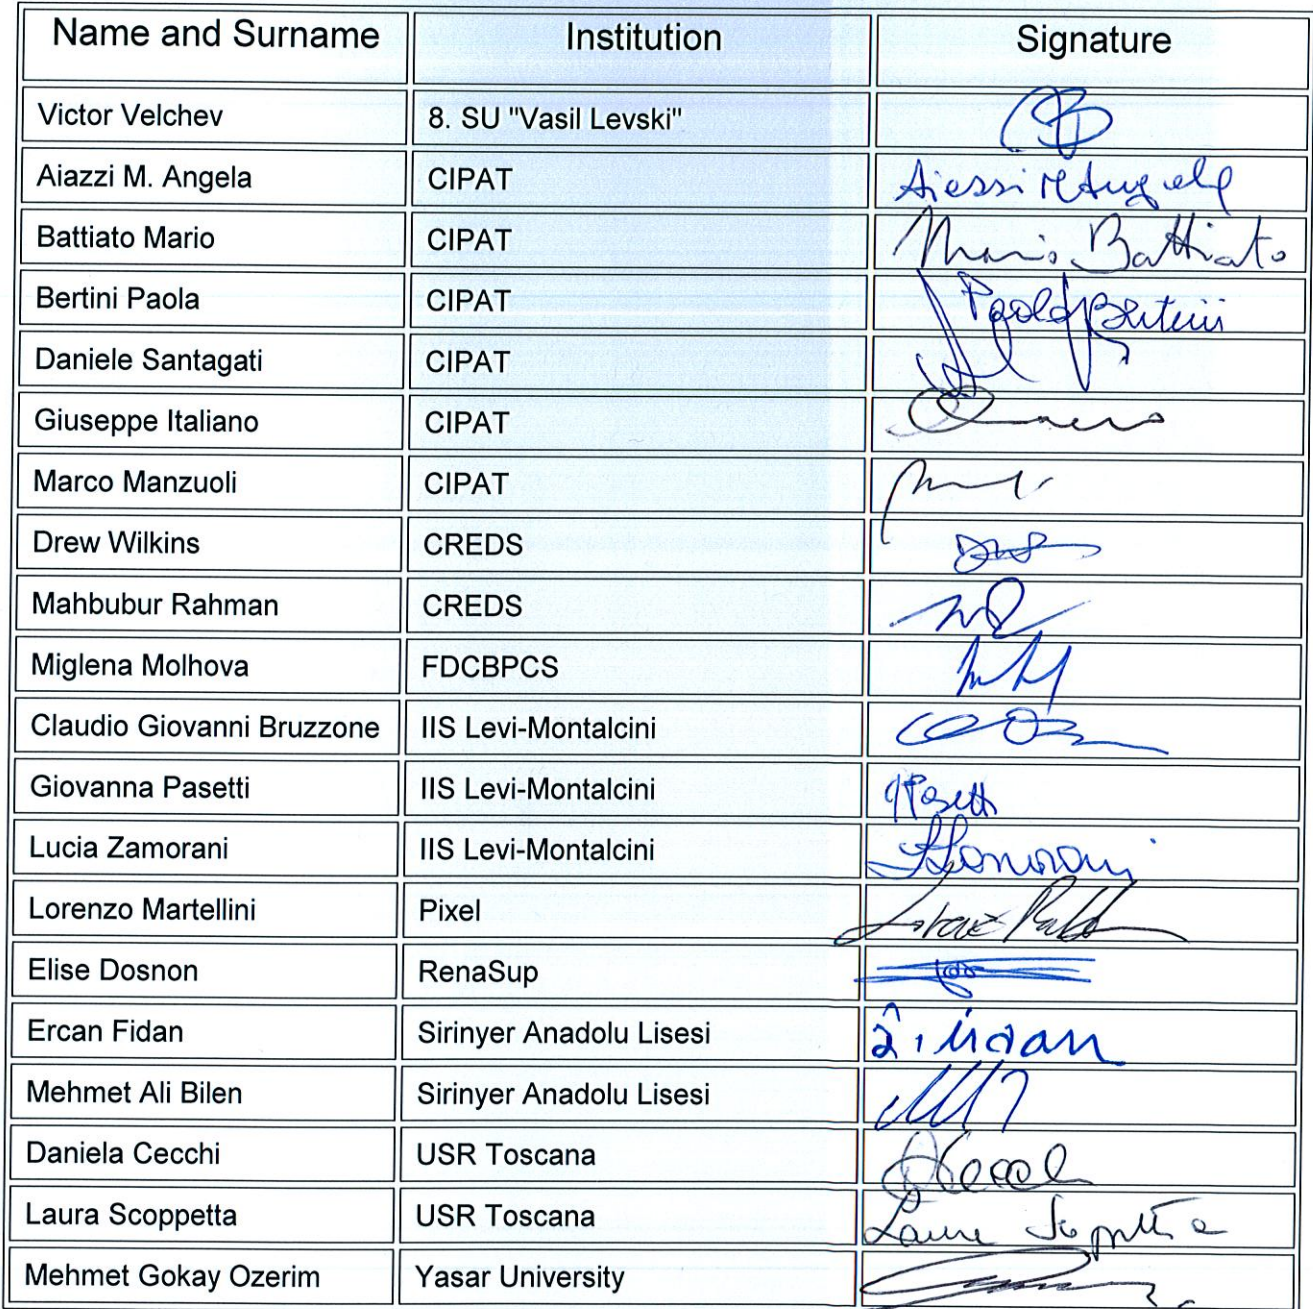 Name and Surname Institution Signature
Victor Velchev 8. SU "Vasil Levski"
Aiazzi M. Angela CIPAT
Battiato Mario CIPAT Mario Battiato
Bertini Paola CIPAT Paola Bertini
Daniele Santagati CIPAT
Giuseppe Italiano CIPAT
Marco Manzuoli CIPAT
Drew Wilkins CREDS
Mahbubur Rahman CREDS
Miglena Molhova FDCBPCS
Claudio Giovanni Bruzzone IIS Levi-Montalcini
Giovanna Pasetti IIS Levi-Montalcini
Lucia Zamorani IIS Levi-Montalcini
Lorenzo Martellini Pixel
Elise Dosnon RenaSup
Ercan Fidan Sirinyer Anadolu Lisesi
Mehmet Ali Bilen Sirinyer Anadolu Lisesi
Daniela Cecchi USR Toscana
Laura Scoppetta USR Toscana
Mehmet Gokay Ozerim Yasar University